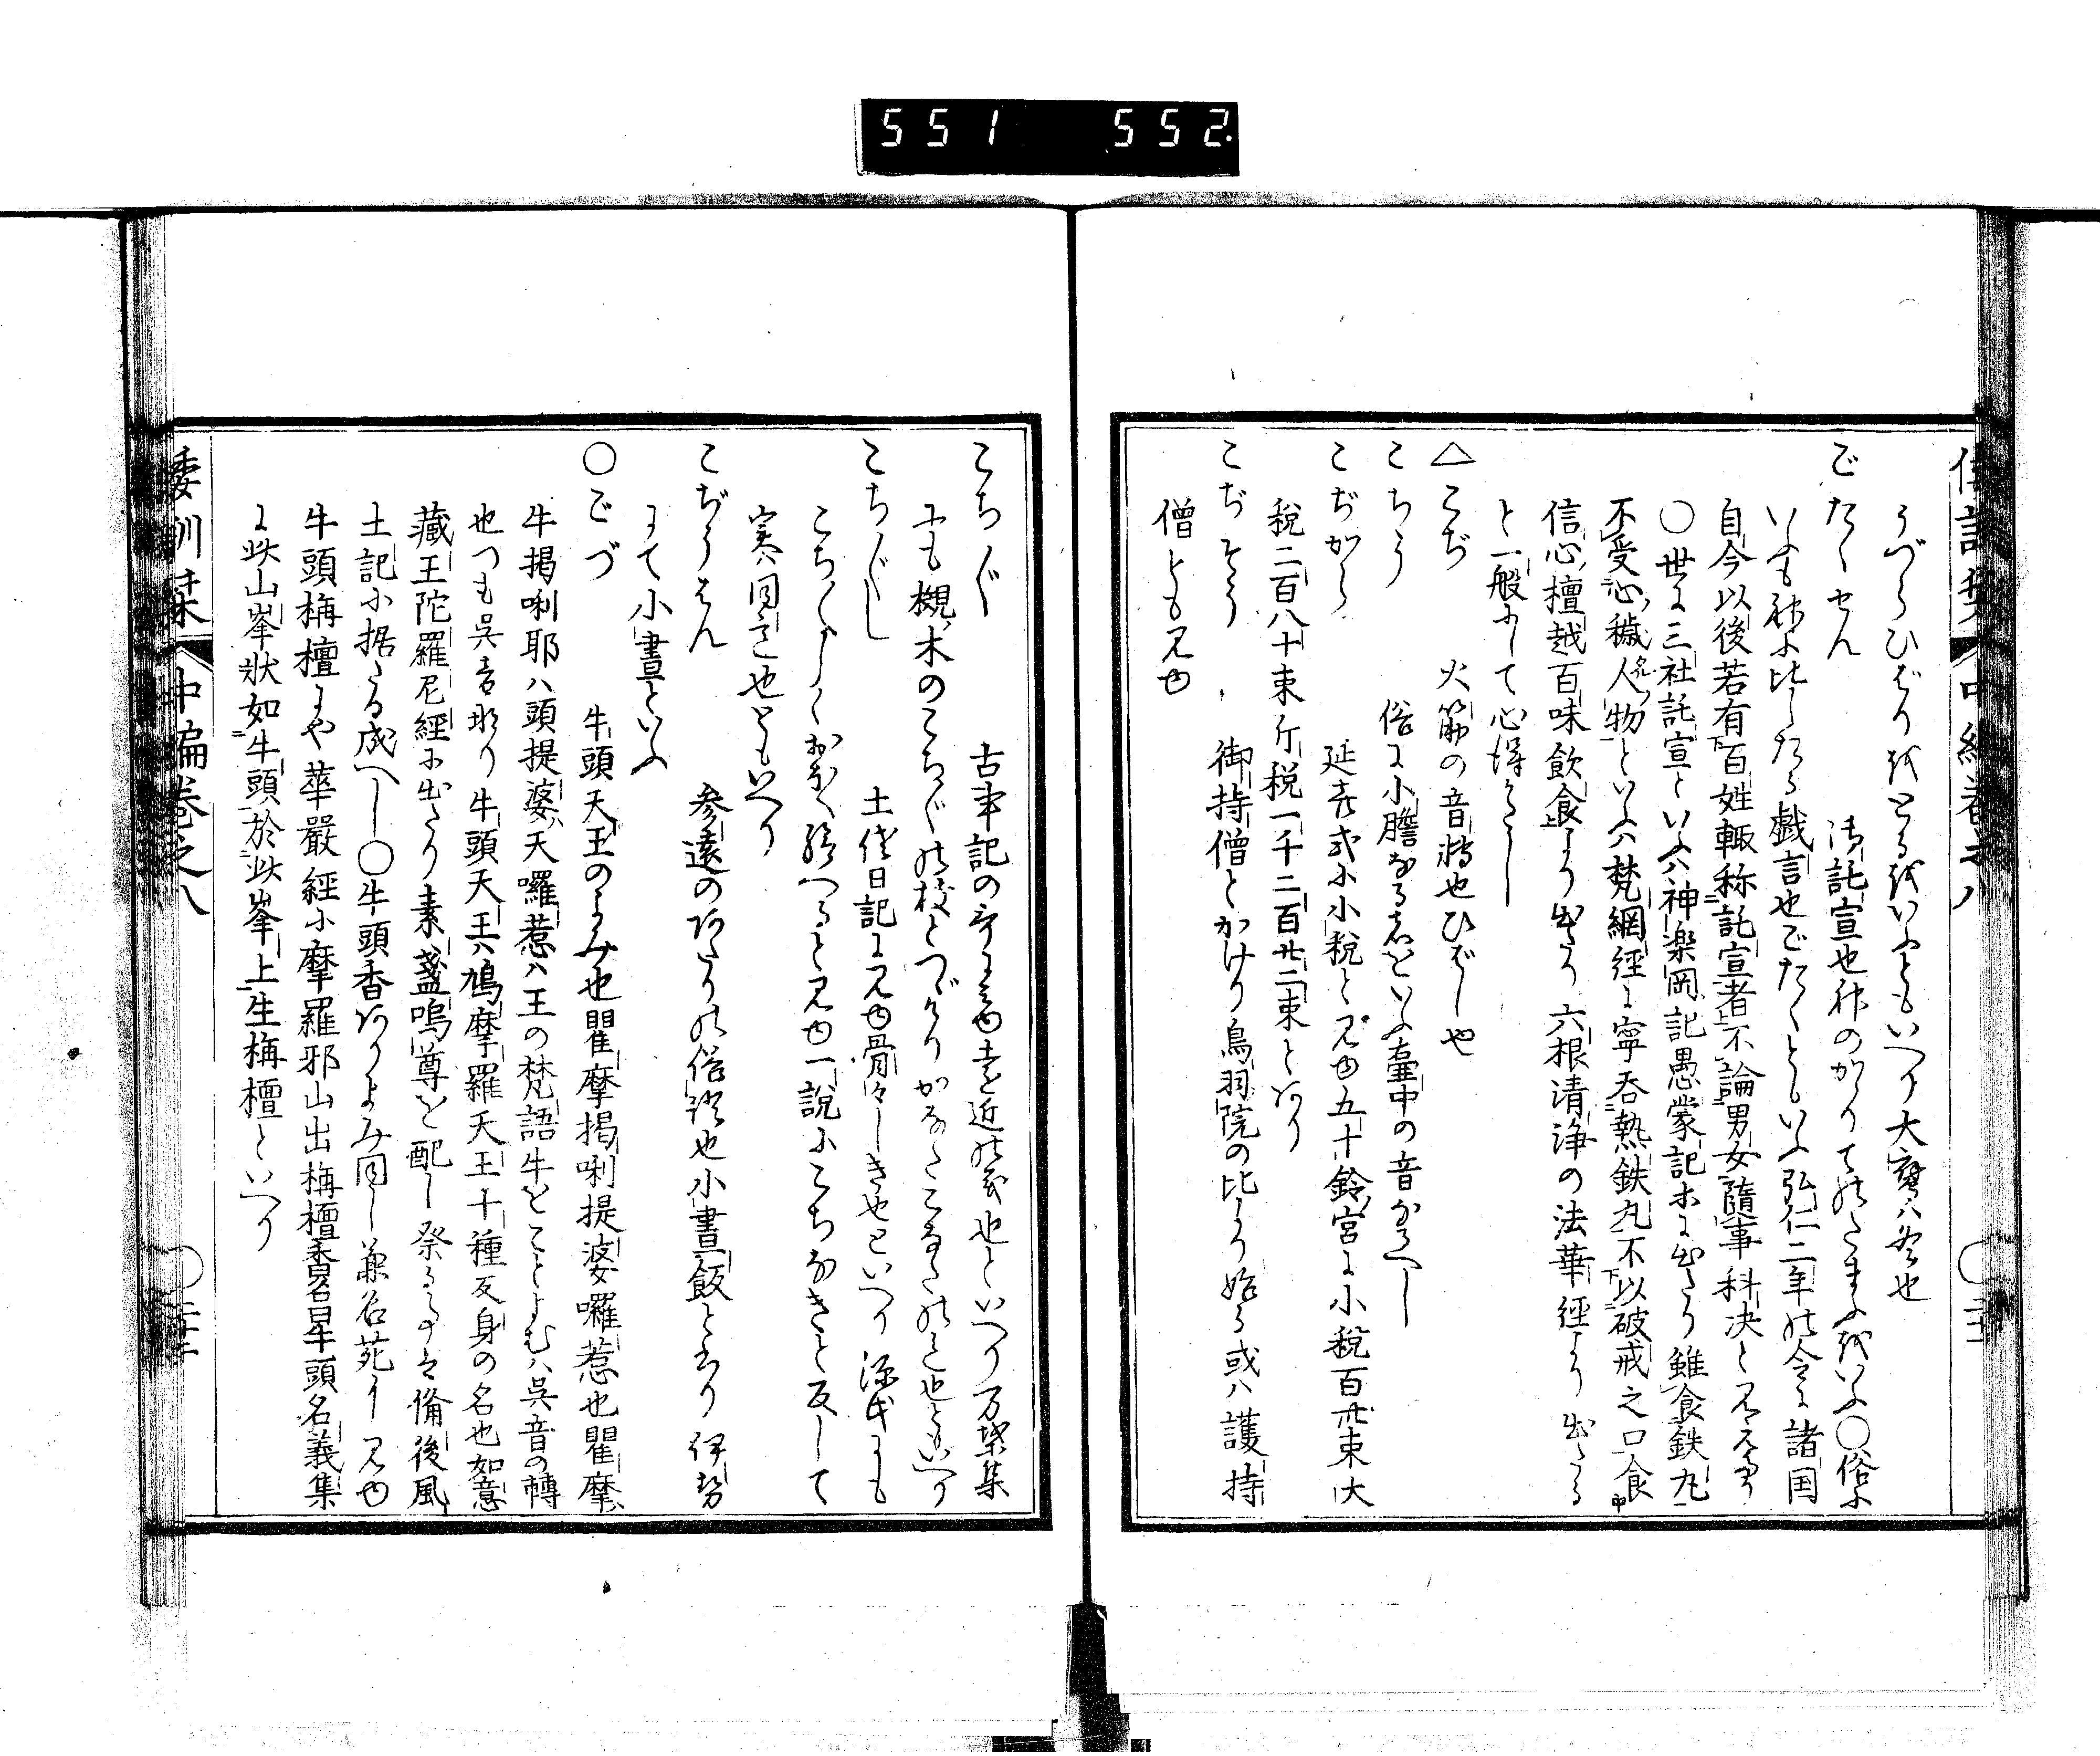 551 552
うづらひばりをとるをいふともいへり大鷹ハ冬也
ごたくせん 御託宣也神のかゝりてのたまふをいふ〇俗に
いふも神に比したる戯言也ごたくともいふ弘仁二年の令に諸国
自今以後若有百姓輙称託宣者不論男女随事科决と見えたり
〇世に三社託宣といふハ神楽岡記愚蒙記等に出たり雖食鉄丸
不受心穢人物といふハ梵網経に寧呑熱鉄丸不以破戒之口食
信心檀越百味飲食より出たり六根清浄の法華経より出たる
と一般にして心得へし
△こぢ 火筋の音轉也ひばし也
こちう 俗に小膽なる者をいふ臺中の音なるへし
こぢから 延喜式に小税と見ゆ五十鈴宮に小税百卅束大
税二百八十束斤税一千二百廿二束とあり
こぢそう 御持僧とかけり鳥羽院の比より始る或ハ護持
僧とも見ゆ
こちごち 古事記の哥に見ゆ遠近の義也といへり万葉集
にも槻木のこちごちの枝とつゞけりかなたこなたの意也ともいへり
こちごちし 土佐日記に見ゆ骨々しき也といへり源氏にも
こちごちしくおほく給へると見ゆ一説にこちなきと反して
実ハ同意也ともいへり
こぢうはん 参遠のあたりの俗語也小晝飯と云り伊勢
にて小晝といふ
〇ごづ 牛頭天王のよみ也瞿摩掲唎提婆囉惹也瞿摩ハ
牛掲唎耶ハ頭提婆ハ天囉惹ハ王の梵語牛をことよむハ呉音の轉
也つも呉音なり牛頭天王ハ鳩摩羅天王十種反身の名也如意
藏王陀羅尼經に出たり素盞嗚尊を配し祭る事は備後風
土記に据たる成へし〇牛頭香ありよみ同し薬名苑にし見ゆ
牛頭栴檀にや華嚴經に摩羅邪山出栴檀香名曰牛頭名義集
に此山峯状如牛頭於此峯上生栴檀といへり
倭訓栞 中編巻之八